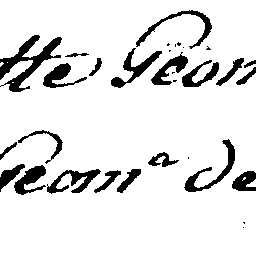 tte Geom
Geom.ª de